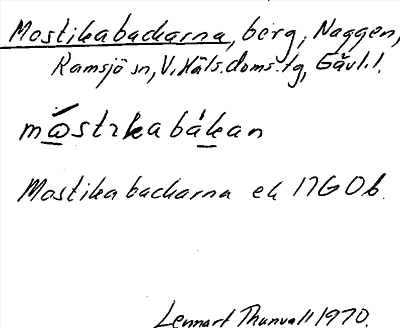 Mostikabackarna, berg, Naggen,
Ramsjö sn, V. Häls. doms. tg, Gävl. l.
mostikabákan
Mostikabackarna ek 17G0b.
Lennart Thunvall 1970.